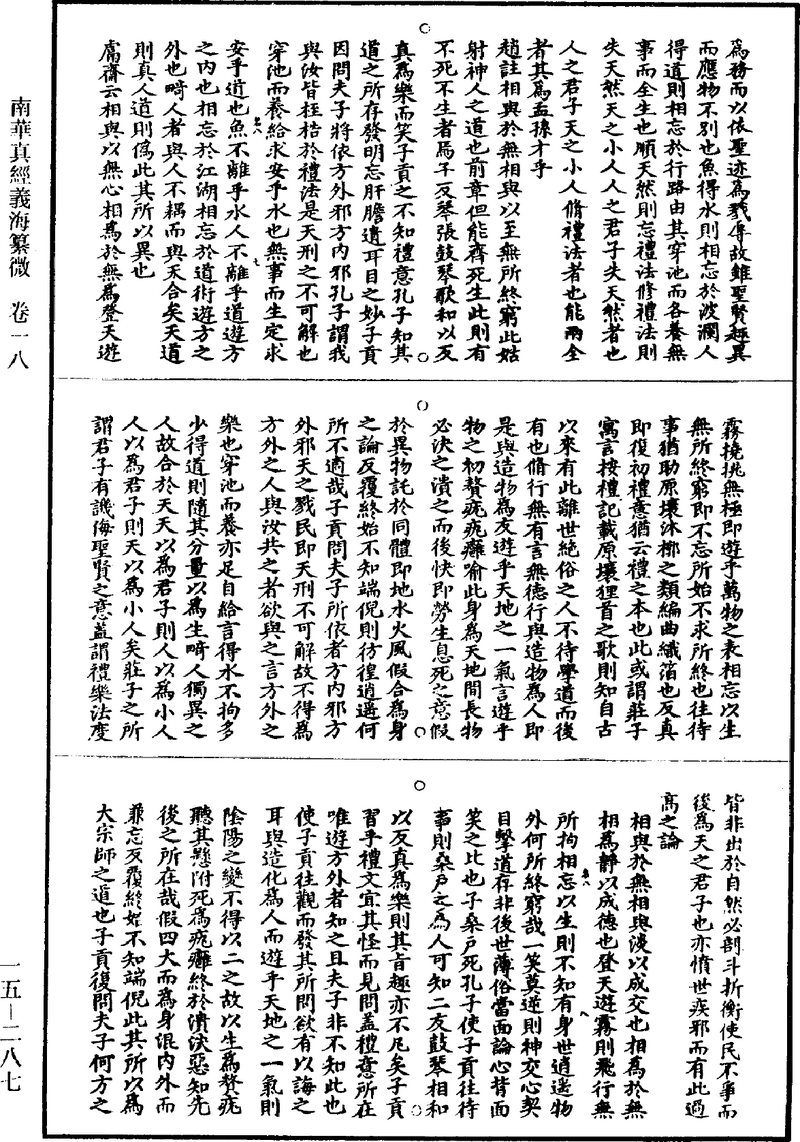 南華真經義海纂微　卷一八
一五—二八七
為務而以依聖迹為戮辱故雖聖賢趣異
而應物不別也魚得水則相忘於波瀾人
得道則相忘於行路由其穿池而各養無
事而全生也順天然則忘禮法修禮法則
失天然天之小人人之君子失天然者也
人之君子天之小人脩禮法者也能兩全
者其為孟孫才乎
趙註相與於無相與以至無所終窮此姑
射神人之道也前章但能齊死生此則有
不死不生者焉子反琴張鼓琴歌和以反
真為樂而笑子貢之不知禮意孔子知其
道之所存發明忘肝膽遺耳目之妙子貢
因問夫子將依方外邪方內邪孔子謂我
與汝皆桎梏於禮法是天刑之不可解也
穿池而養給求安乎水也無事而生定求
安乎道也魚不離乎水人不離乎道遊方
之內也相忘於江湖相忘於道術遊方之
外也畸人者與人不耦而與天合矣天道
則真人道則偽此其所以異也
鬳齋云相與以無心相為於無為登天遊
霧撓挑無極即遊乎萬物之表相忘以生
無所終窮即不忘所始不求所終也往待
事猶助原壤沐槨之類編曲織箔也反真
即復初禮意猶云禮之本也此或謂莊子
寓言按禮記載原壤狸首之歌則知自古
以來有此離世絕俗之人不待學道而後
有也脩行無有言無德行與造物為人即
是與造物為友遊乎天地之一氣言遊乎
物之初贅疣疣癰喻此身為天地間長物
必決之潰之而後快即勞生息死之意假
於異物託於同體即地水火風假合為身
之論反覆終始不知端倪則彷徨逍遙何
所不適哉子貢問夫子所依者方內邪方
外邪天之戮民即天刑不可解故不得為
方外之人與汝共之者欲與之言方外之
樂也穿池而養亦足自給言得水不拘多
少得道則隨其分量以為生畸人獨異之
人故合於天天以為君子則人以為小人
人以為君子則天以為小人矣莊子之所
謂君子有譏侮聖賢之意蓋謂禮樂法度
皆非出於自然必剖斗折衡使民不爭而
後為天之君子也亦憤世疾邪而有此過
高之論
相與於無相與淡以成交也相為於無
相為靜以成德也登天遊霧則飛行無
所拘相忘以生則不知有身世逍遙物
外何所終窮哉一笑莫逆則神交心契
目擊道存非後世薄俗當面論心背面
笑之比也子桑戶死孔子使子貢往待
事則桑戶之為人可知二友鼓琴相和
以反真為樂則其旨趣亦不凡矣子貢
習乎禮文宜其怪而見問蓋禮意所在
唯遊方外者知之且夫子非不知此也
使子貢往觀而發其所問欲有以誨之
耳與造化為人而遊乎天地之一氣則
陰陽之變不得以二之故以生為贅疣
聽其懸附死為疣癰終於潰決惡知先
後之所在哉假四大而為身泯內外而
兼忘反覆終始不知端倪此其所以為
大宗師之道也子貢復問夫子何方之